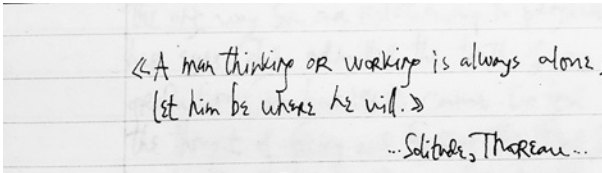 «A man thinking or working is always alone,
let him be where he will.»
...Solitude, Thoreau...